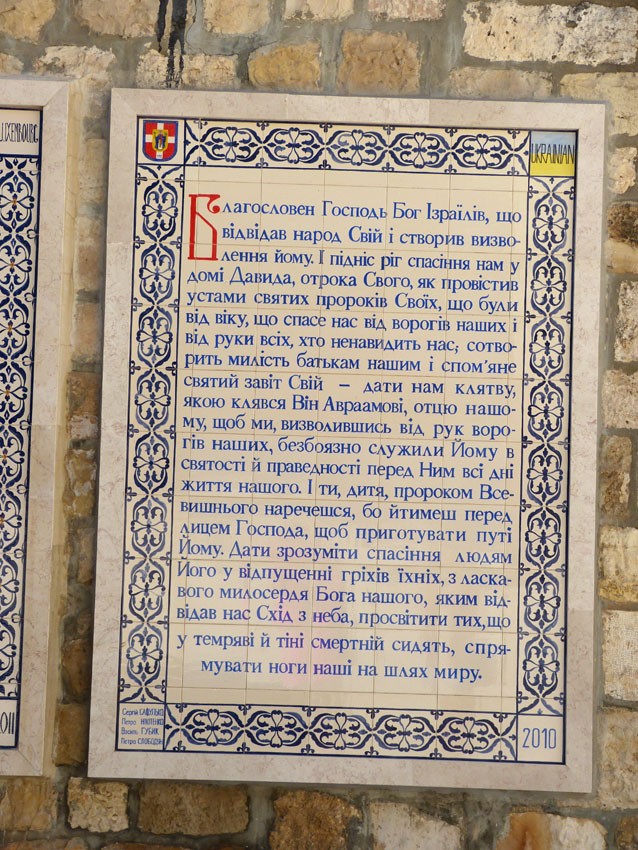 UXEMBOURG
UKRAINIAN
Благословен Господь Бог Ізраїлів, що
відвідав народ Свій і створив визво-
лення йому. І підніс ріг спасіння нам у
домі Давида, отрока Свого, як провістив
устами святих пророків Своїх, що були
від віку, що спасе нас від ворогів наших і
від руки всіх, хто ненавидить нас; сотво-
рить милість батькам нашим і спом’яне
святий завіт Свій – дати нам клятву,
якою клявся Він Авраамові, отцю нашо-
му, щоб ми, визволившись від рук воро-
гів наших, безбоязно служили Йому в
святості й праведності перед Ним всі дні
життя нашого. І ти, дитя, пророком Все-
вишнього наречешся, бо йтимеш перед
лицем Господа, щоб приготувати путі
Йому. Дати зрозуміти спасіння людям
Його у відпущенні гріхів їхніх, з ласка-
вого милосердя Бога нашого, яким від-
відав нас Схід з неба, просвітити тих, що
у темряві й тіні смертній сидять, спря-
мувати ноги наші на шлях миру.
Сергій
Петро
Василь ГУБИК
Петро СЛОБОДЯН
2010